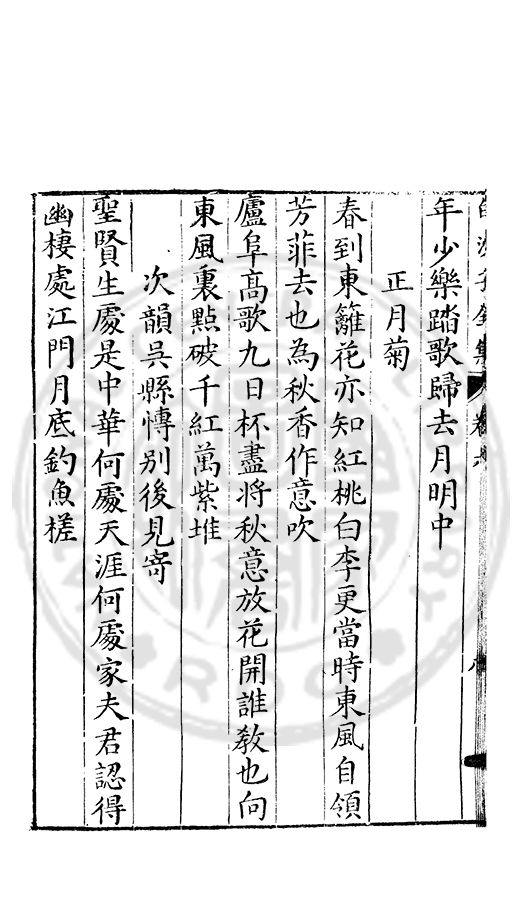 年少樂踏歌歸去月明中
正月菊
春到東籬花亦知紅桃白李更當時東風自領
芳菲去也為秋香作意吹
廬阜高歌九日杯盡將秋意放花開誰敎也向
東風裏點破千紅萬紫堆
次韻吳縣慱別後見寄
聖賢生處是中華何處天涯何處家夫君認得
幽棲處江門月底釣魚槎